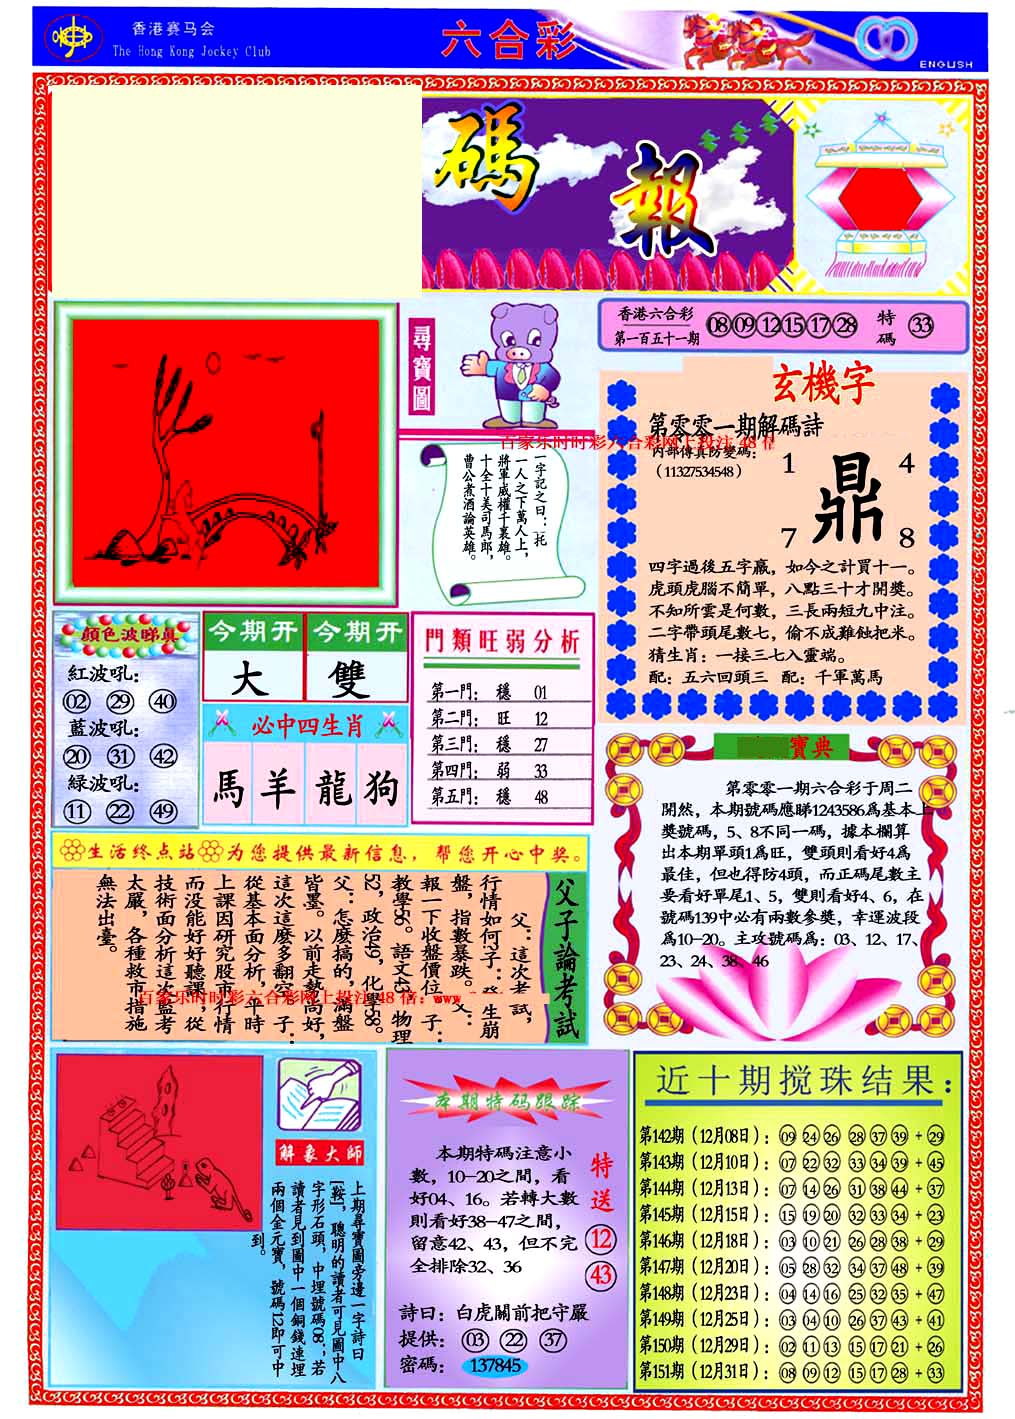 香港赛马会
The Hong Kong Jockey Club
六合彩
ENGLISH
碼
報
尋寶圖
香港六合彩
第一百五十一期
08 09 12 15 17 28
特碼
33
玄機字
第零零一期解碼詩
百家乐时时彩六合彩网上投注 48 倍
內部傳真防變碼：
（11327534548）
1
4
鼎
7
8
四字過後五字贏，如今之計買十一。
虎頭虎腦不簡單，八點三十才開獎。
不知所雲是何數，三長兩短九中注。
二字帶頭尾數七，偷不成難蝕把米。
猜生肖：一接三七入靈端。
配：五六回頭三 配：千軍萬馬
一字記之曰：托
一人之下萬人上，
將軍威權千裏雄。
十全十美司馬郎，
曹公煮酒論英雄。
顏色波睇真
紅波吼：
02 29 40
藍波吼：
20 31 42
緑波吼：
11 22 49
今期开
大
今期开
雙
必中四生肖
馬
羊
龍
狗
門類旺弱分析
第一門： 穩 01
第二門： 旺 12
第三門： 穩 27
第四門： 弱 33
第五門： 穩 48
寶典
第零零一期六合彩于周二
開然，本期號碼應睇1243586爲基本上
獎號碼，5、8不同一碼，據本欄算
出本期單頭1爲旺，雙頭則看好4爲
最佳，但也得防4頭，而正碼尾數主
要看好單尾1、5，雙則看好4、6，在
號碼139中必有兩數參獎，幸運波段
爲10-20。主攻號碼爲：03、12、17、
23、24、38、46
生活终点站 为您提供最新信息，帮您开心中奖。
父子論考試
父：這次考試，
行情如何子：
生崩
盤，指數暴跌。父：
報一下收盤價位。子：
教學56。語文42，物理
52，政治49，化學58。
父：怎麽搞的，滿盤
皆墨。以前走勢尚好，
這次這麽多翻空。子：
從基本面分析，平時
上課因研究股市行情
而没能好好聽課；從
技術面分析這次監考
太嚴，各種救市措施
無法出臺。
百家乐时时彩六合彩网上投注 48 倍：www
解象大師
上期尋寶圖旁邊一字詩曰
[鞍]，聰明的讀者可見圖中八
字形石頭，中埋號碼08；若
讀者見到圖中一個銅錢連埋
兩個金元寶，號碼12即可中
到。
本期特码跟踪
本期特碼注意小
數，10-20之間，看
好04、16。若轉大數
則看好38-47之間，
留意42、43，但不完
全排除32、36
特送
12
43
詩曰：白虎關前把守嚴
提供： 03 22 37
密碼： 137845
近十期搅珠结果：
第142期（12月08日）：09 24 26 28 37 39 + 29
第143期（12月10日）：07 22 32 33 34 39 + 45
第144期（12月13日）：07 14 26 31 38 44 + 37
第145期（12月15日）：15 19 20 32 33 34 + 23
第146期（12月18日）：03 10 21 26 28 38 + 29
第147期（12月20日）：05 28 32 34 37 48 + 39
第148期（12月23日）：04 14 16 25 32 35 + 47
第149期（12月25日）：03 04 10 26 37 43 + 41
第150期（12月29日）：02 11 13 15 17 21 + 26
第151期（12月31日）：08 09 12 15 17 28 + 33